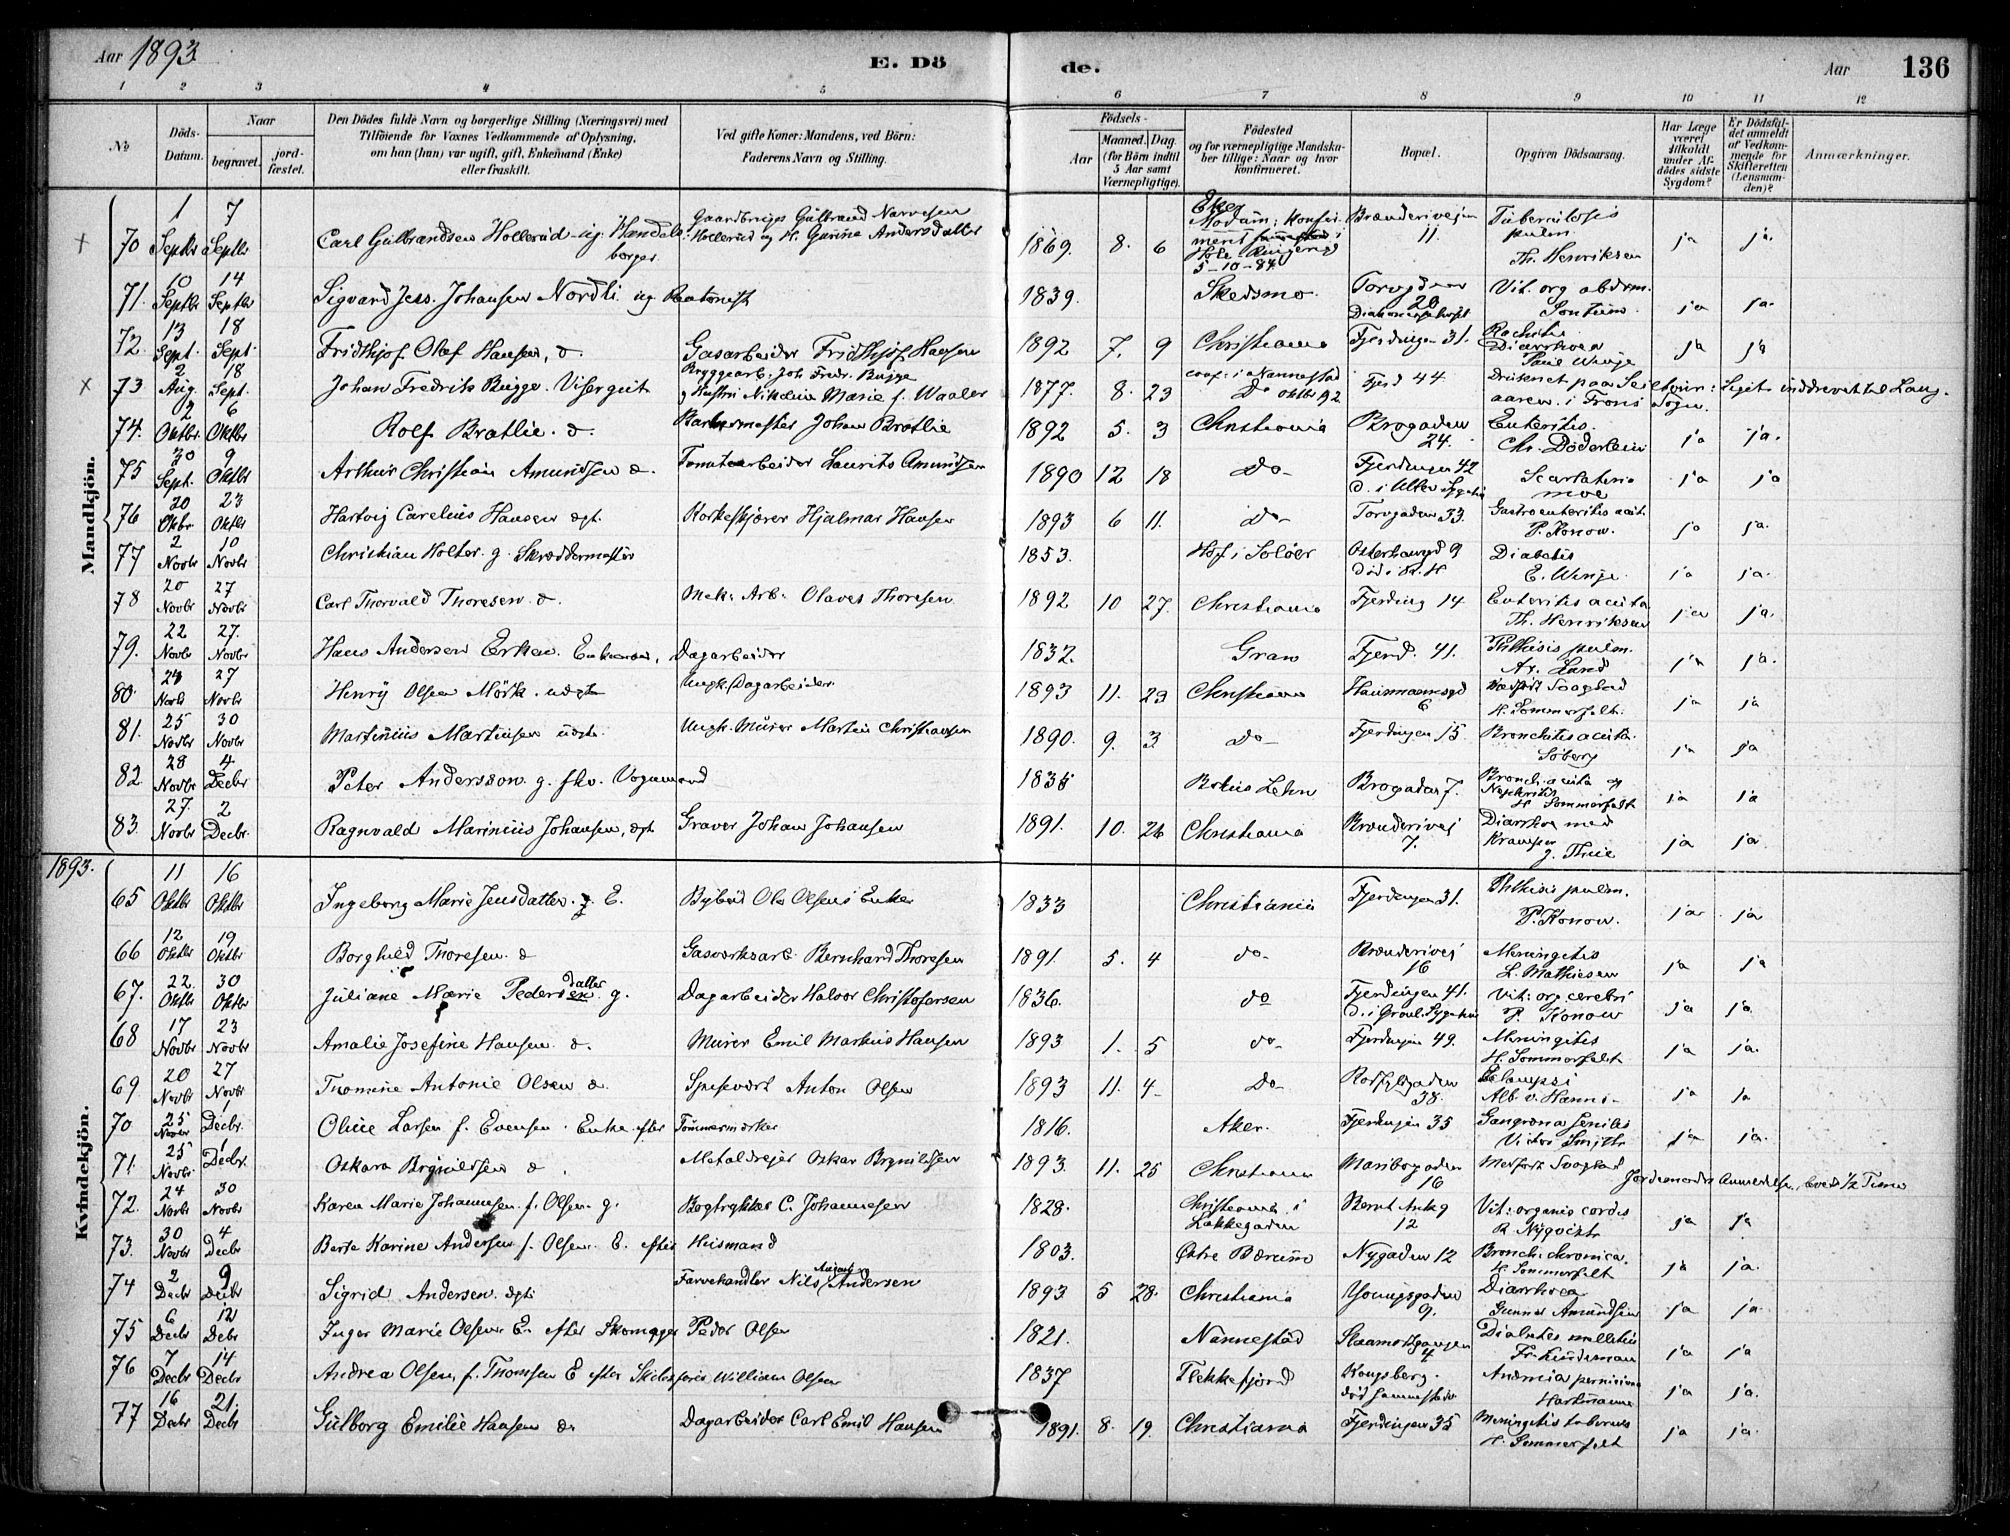 Aar 1893. E. Dö de. Aar 136
1 2 3 4 5 6 7 8 9 10 11 12
No
Döds-Datum.
Naar
begravet.
jordfæstet.
Den Dödes fulde Navn og borgerlige Stilling (Næringsvei) med
Tilföiende for Voxnes Vedkommende af Oplysning,
om han (hun) var ugift, gift, Enkemand (Enke)
eller fraskilt.
Ved gifte Koner: Mandens, ved Börn:
Faderens Navn og Stilling.
Födsels-
Aar
Maaned. Dag.
(for Börn indtil 5 Aar samt Værnepligtige).
Födested
og for værnepligtige Mandskaber tillige: Naar og hvor konfirmeret.
Bopæl.
Opgiven Dödsaarsag.
Har Læge været tilkaldt under Afdödes sidste Sygdom?
Er Dödsfaldet anmeldt af Vedkommende for Skifteretten (Lensmanden)?
Anmærkninger.
Mandkjön.
70 1 Septbr 7 Septbr Carl Gulbrandsen Hollerud ug. Handelsborger Gaardbruger Gulbrand Narvesen Hollerud og H. Gurine Andersdatter 1869. 8. 6 Eker Modum: Konfirmert i Hole Ringerig 5-10-84 Brænderivejen 11. Tuberculosis pulm. Th. Henriksen ja ja.
71. 10 Septbr 14 Septbr Sigvard Jess. Johansen Nordli ug 1839. Skedsmo Torvgaden 20 Vit. org abdom. ja ja.
72. 13 Sept. 18 Sept Fridthjof Olaf Hansen, d. Gasarbeider Fridthjof Hansen 1892 7. 9 Christiania Fjerdingen 31. Rachitis Diarrhoea Paul Winge ja ja
73 2 Aug. 18 Sept. Johan Fredrik Bugge. Visergut Bryggearb. Joh Fredr. Bugge og Hustru Nikoline Marie f. Waaler 1877. 8. 23 conf. i Nannestad Do oktbr 92 Fjerd 44 Druknet paa Seiltour: Liget inddrevet til Lang aaren i Trons Sogn.
74. 2 Oktbr. 6 Oktbr Rolf Bratlie. d. Johan Bratlie 1892 5. 3 Christiania Brogaden 24. Enteritis. Chr. Döderlein ja ja.
75 30 Sept. 9 Oktbr Arthur Christian Amundsen d. Tomtearbeider Laurits Amundsen 1890 12 18 Do- Fjerdingen 42 d. i Ullev. Sygehus Scarlatina moe ja ja
76 20 Okbr 23 Oktbr Hartvig Carelius Hansen ægt. Korkeskjærer Hjalmar Hansen 1893 6 11. Do- Torvgaden 33. Gastroenteritis acut. P. Konow. ja ja.
77 2 Novbr 10 Novbr Christian Holter g. Skræddermester 1853. Hof i Solöer Osterhausgd 9 död i R. H Diabetis E. Winge. ja ja.
78 20 Novbr 27 Novbr Carl Thorvald Thoresen d. Mek: Arb: Olaves Thoresen 1892 10 27. Christiania Fjerding 14. Enteritis acuta Th. Henriksen ja ja.
79. 22 Novbr 27. Novbr. Hans Andersen Erken. Enkemand, Dagarbeider 1832. Gran Fjerd. 41. Phthisis pulm. Ax. Lund ja ja.
80 27 Novb Henry Olsen Mörk. uægt Ungk. Dagarbeider 1893 11. 23 Christiania Hausmannsgd 6 Medfödt Svaghed H. Sommerfelt. ja ja
81. 25 Novbr 30 Novbr Martinius Martinsen uægt. Ungk. Murer Martin Christiansen 1890. 9. 3 Do- Fjerdingen 15. Bronchitis acuta. Söberg ja ja
82 28 Novbr 4 Decbr Peter Andersson g. fhv. Vognmand 1835 Bohus Lehn Brogaden 7. Bronch: acuta og Nephritis H Sommerfelt ja ja
83. 27. Novbr 2 Decbr. Ragnvald Marinius Johansen, ægt Graver Johan Johansen 1891. 10. 26 Christiania Brænderivej 7. Diarrhoe med Kramper J. Thiie ja ja.
1893.
Kvindekjön.
65 11 Oktbr 16 Oktbr Ingeborg Marie Jensdatter. E. Bybud Ole Olsens Enke 1833 Christiania Fjerdingen 31. Phthisis pulm. P. Konow. ja ja
66 12 Oktbr 19 Oktbr Borghild Thoresen d Gasverksarb. Bernhard Thoresen 1891. 5. 4 do- Brænderivej 16 Meningitis L. Mathiesen ja ja
67. 22. Oktbr 30 Oktbr Juliane Marie Pedersen datter g. Dagarbeider Halvor Christofersen 1836. do Fjerdingen 41. d. i Grönl. Sygehus Vit: org cerebri P. Konow ja ja.
68 17 Novbr 23 Novbr Amalie Josefine Hansen d. Murer Emil Markus Hansen 1893 1. 5 do- Fjerdingen 49. Meningitis H. Sommerfelt ja ja.
69 20 Novbr 27 Novbr Thomine Antonie Olsen d. Spisevært Anton Olsen 1893 11. 4 Do- Rosfeldtgaden 38. Eclampsi Alb v. Hanno- ja ja
70 25 Novbr 1 Decbr. Oline Larsen f. Evensen. Enke efter Tömmermerker 1816. Aker. Fjerdingen 35 Gangræna Senilis Victor Smith ja ja.
71. 25 Novbr. 1 Decbr. Oskara Brynildsen d. Metaldrejer Oskar Brynildsen 1893. 11. 25 Christiania Mariboegaden 16 Medfödt Svaghed Jordemoders Anmeldelse, levet 1/2 Time
72. 24 Novbr 30 Novbr Karen Marie Johannesen f. Olsen g. Bogtrykker C. Johannesen 1828. Christiania i Lakkegaden Bernt Ankg 12 Vit: organis cordis R. Nyqvist ja ja
73. 30 Novbr 4 Decbr Berte Karine Andersen f. Olsen. E. efter Huismand 1803. Östre Bærum Nygaden 12 Bronch: chronica. H. Sommerfelt ja ja.
74 2 Decbr 9 Decbr Sigrid Andersen ægt Farvehandler Nils August Andersen 1893 5 28. Christiania Youngsgaden 9. Diarrhoea Gunnar Amundsen ja ja.
75 6 Decbr 12 Debr Inger Marie Olsen E. efter Skomager Peder Olsen 1821. Nannestad Diabetes mellitus Fr. Lindeman ja ja
76 7 Decbr 14 Decbr Andrea Olsen, f. Thomsen E efter William Olsen 1837 Flekkefjord Kongsberg. Anæmia perniciosa Hartmann ja ja.
77 16 Decbr 21. Decbr Gulborg Emilie Hansen d. Dagarbeider Carl Emil Hansen 1891. 8. 19. Christiania Fjerdingen 35 Meningitis tubercul H. Sommerfelt ja ja.